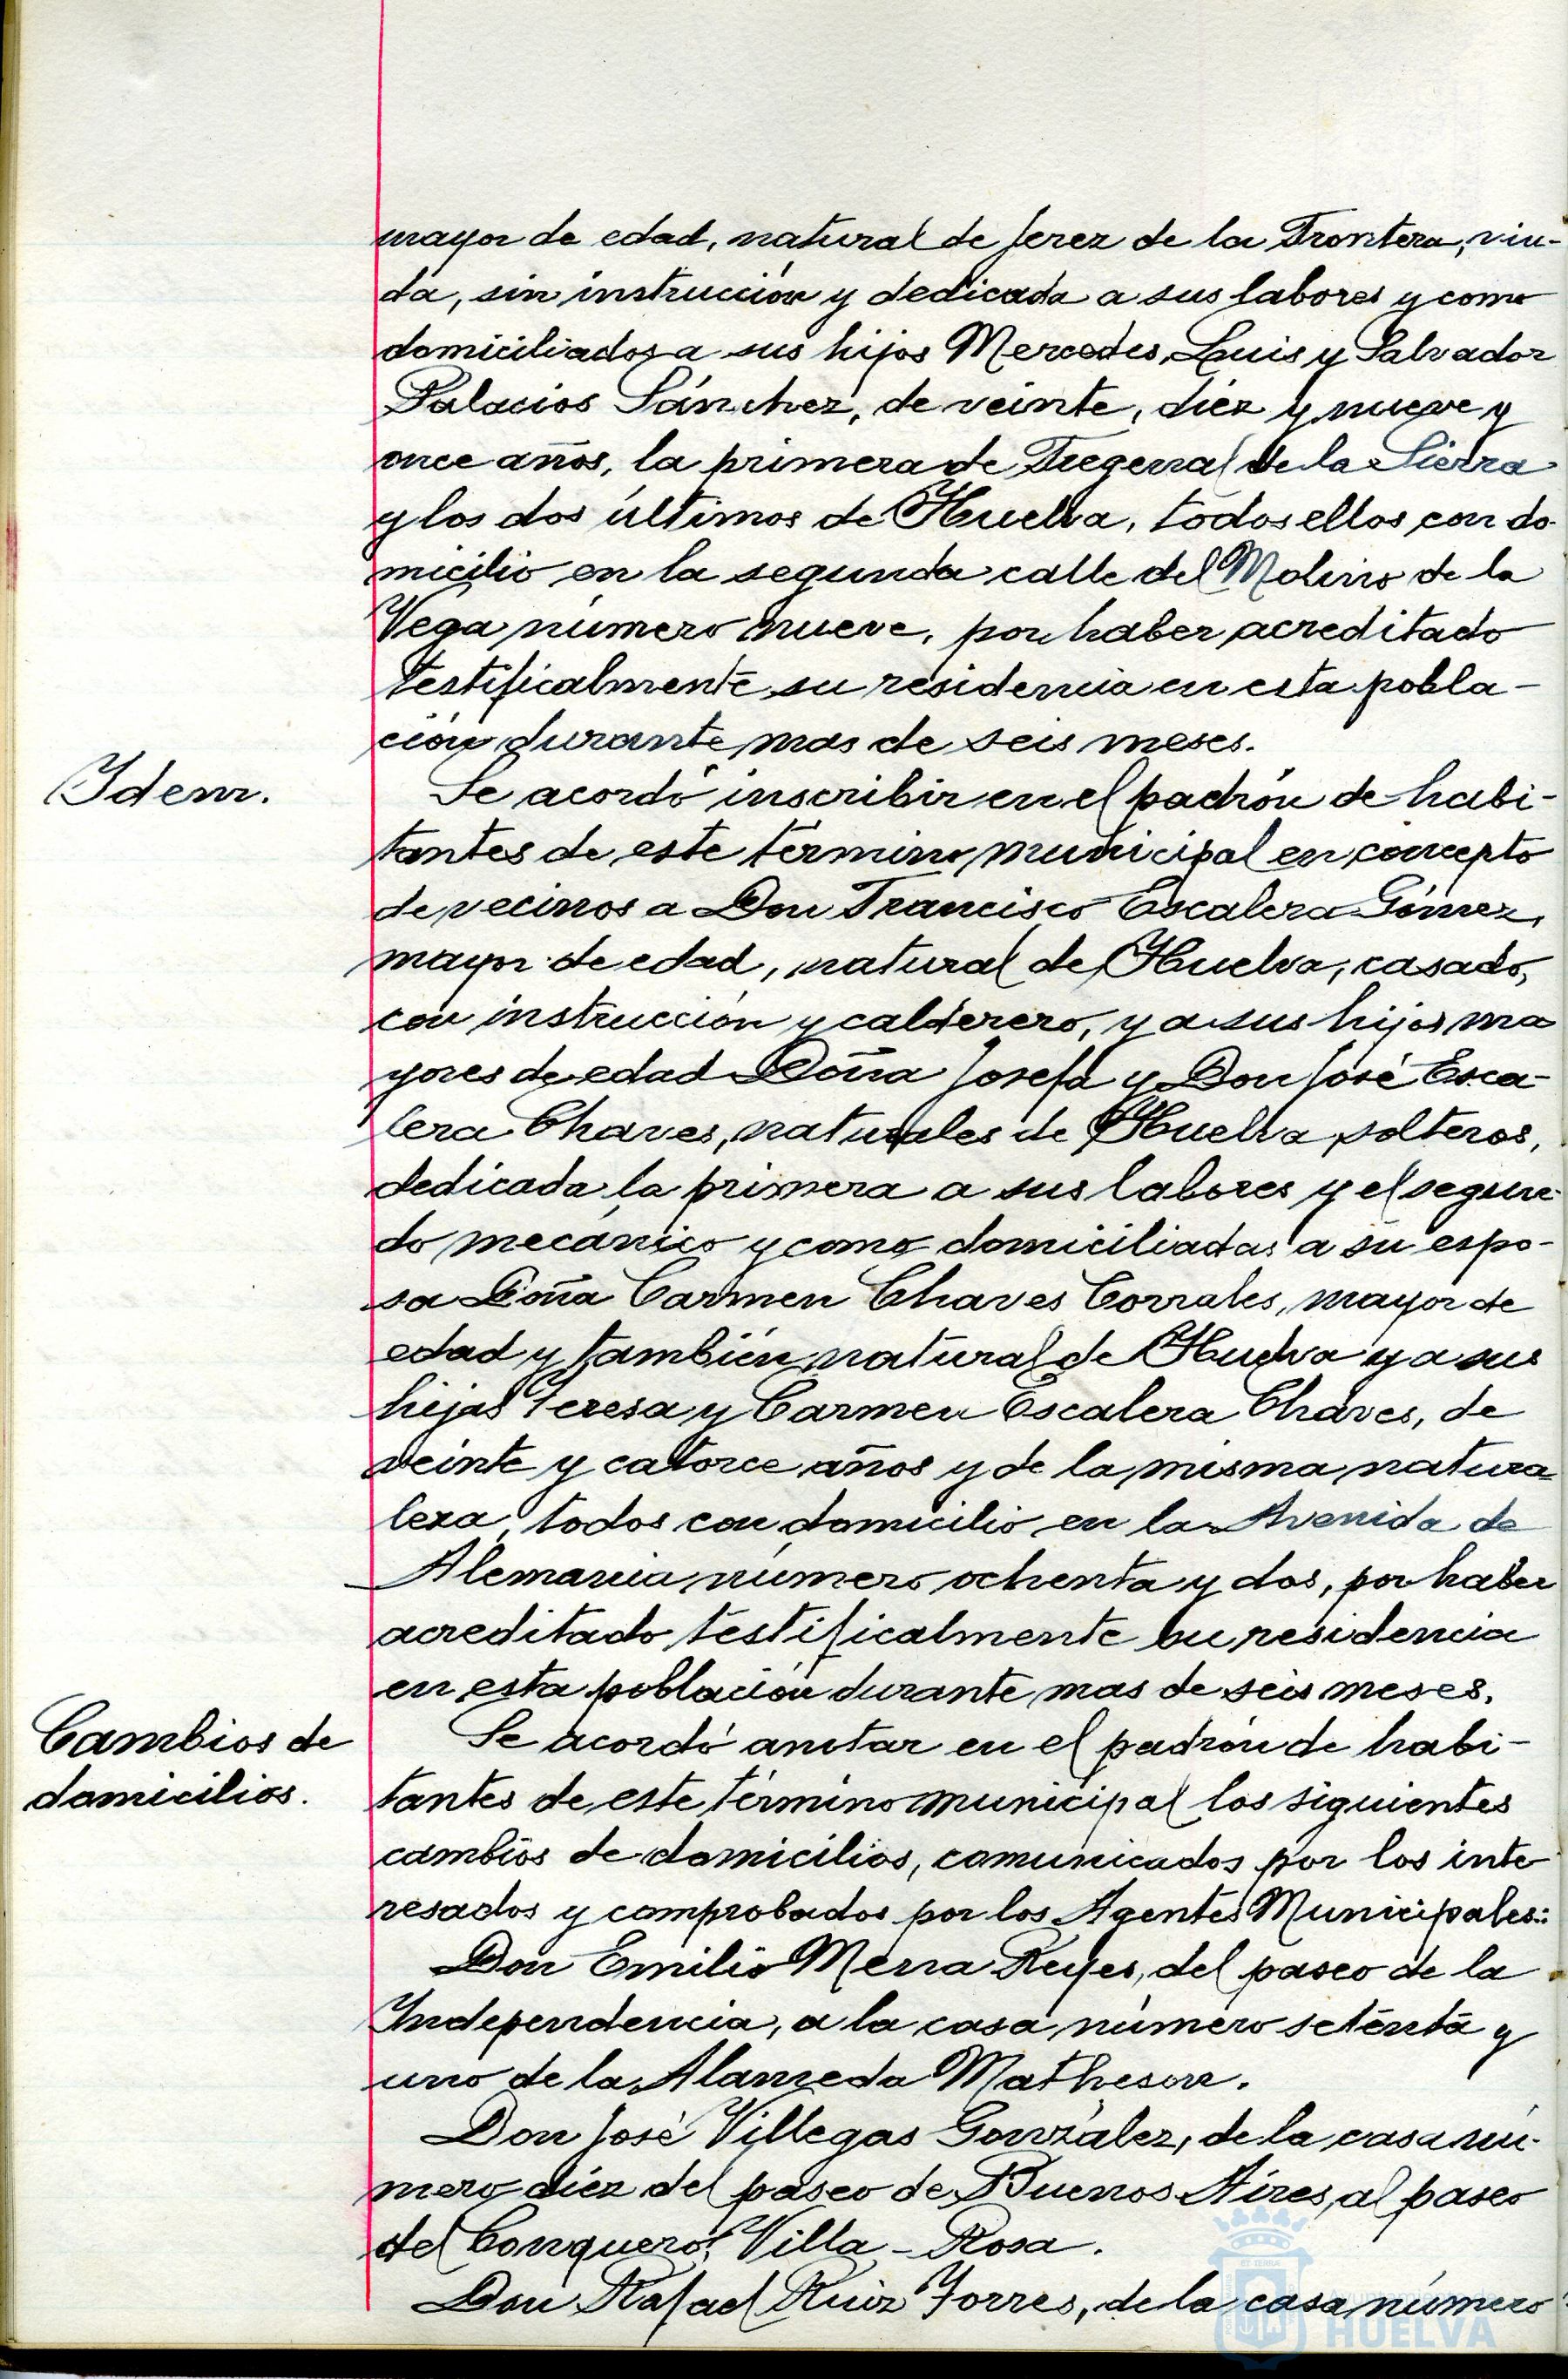 mayor de edad, natural de Jerez de la Frontera, viu-
da, sin instrucción y dedicada a sus labores y como
domiciliados a sus hijos Mercedes, Luis y Salvador
Palacios Sánchez, de veinte, diéz y nueve y
once años, la primera de Fregenal de la Sierra
y los dos últimos de Huelva, todos ellos con do-
micilio en la segunda calle del Molino de la
Vega número nueve, por haber acreditado
testificalmente su residencia en esta pobla-
ción durante mas de seis meses.
Idem.
Se acordó inscribir en el padrón de habi-
tantes de este término municipal en concepto
de vecinos a Don Francisco Escalera Gómez,
mayor de edad, natural de Huelva, casado,
con instrucción y calderero, y a sus hijos ma
yores de edad Doña Josefa y Don José Esca-
lera Chaves, naturales de Huelva, solteros,
dedicada la primera a sus labores y el segun-
do mecánico y como domiciliadas a su espo-
sa Doña Carmen Chaves Corrales, mayor de
edad y también natural de Huelva y a sus
hijas Teresa y Carmen Escalera Chaves, de
veinte y catorce años y de la misma natura-
leza, todos con domicilio en la Avenida de
Alemania número ochenta y dos, por haber
acreditado testificalmente su residencia
en esta población durante mas de seis meses.
Cambios de
domicilios.
Se acordó anotar en el padrón de habi-
tantes de este término municipal los siguientes
cambios de domicilios, comunicados por los inte
resados y comprobados por los Agentes Municipales:
Don Emilio Mena Reyes, del paseo de la
Independencia, a la casa número setenta y
uno de la Alameda Matheson.
Don José Villegas González, de la casa nú-
mero diéz del paseo de Buenos Aires, al paseo
del Conquero, Villa-Rosa.
Don Rafael Ruiz Torres, de la casa número
Ayuntamiento de
HUELVA